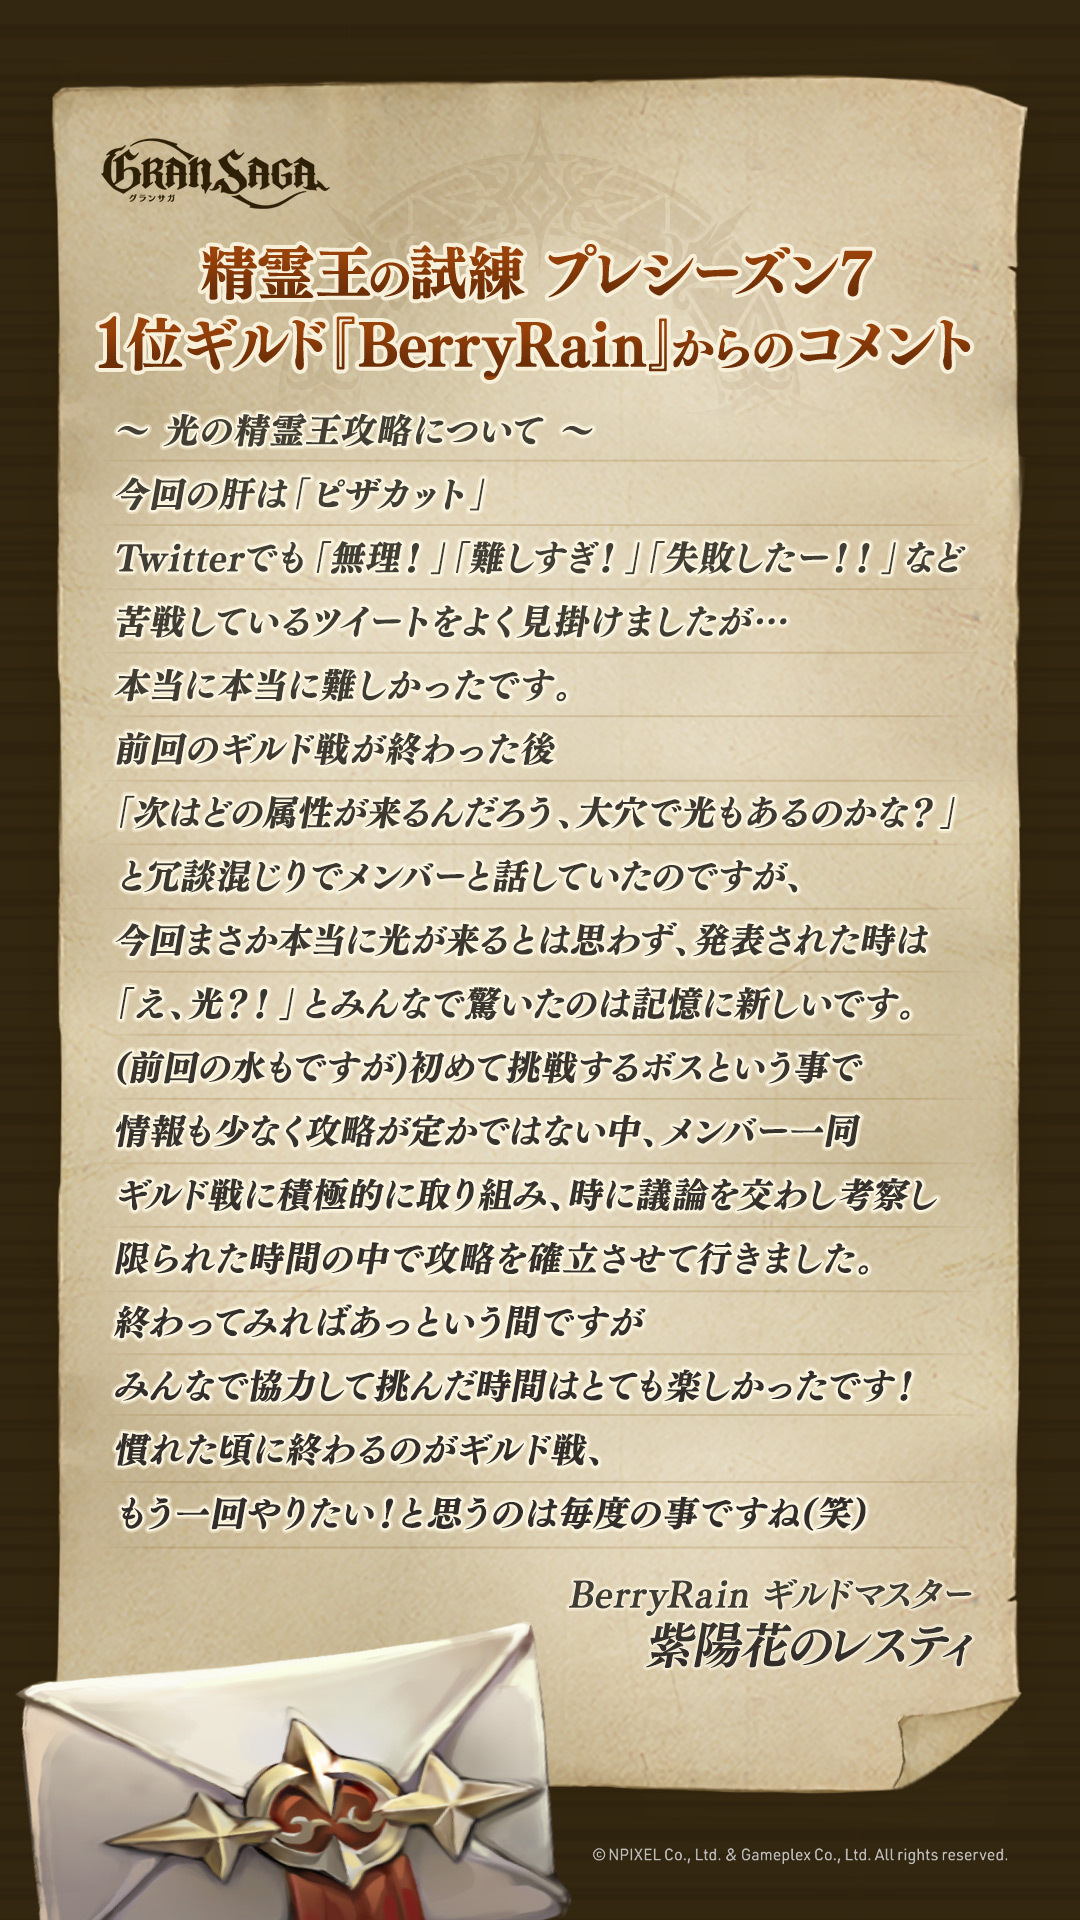 GRAN SAGA
グランサガ
精霊王の試練 プレシーズン7
1位ギルド『BerryRain』からのコメント
～ 光の精霊王攻略について ～
今回の肝は「ピザカット」
Twitterでも「無理！」「難しすぎ！」「失敗したー！！」など
苦戦しているツイートをよく見掛けましたが…
本当に本当に難しかったです。
前回のギルド戦が終わった後
「次はどの属性が来るんだろう、大穴で光もあるのかな？」
と冗談混じりでメンバーと話していたのですが、
今回まさか本当に光が来るとは思わず、発表された時は
「え、光？！」とみんなで驚いたのは記憶に新しいです。
(前回の水もですが)初めて挑戦するボスという事で
情報も少なく攻略が定かではない中、メンバー一同
ギルド戦に積極的に取り組み、時に議論を交わし考察し
限られた時間の中で攻略を確立させて行きました。
終わってみればあっという間ですが
みんなで協力して挑んだ時間はとても楽しかったです！
慣れた頃に終わるのがギルド戦、
もう一回やりたい！と思うのは毎度の事ですね(笑)
BerryRain ギルドマスター
紫陽花のレスティ
© NPIXEL Co., Ltd. & Gameplex Co., Ltd. All rights reserved.